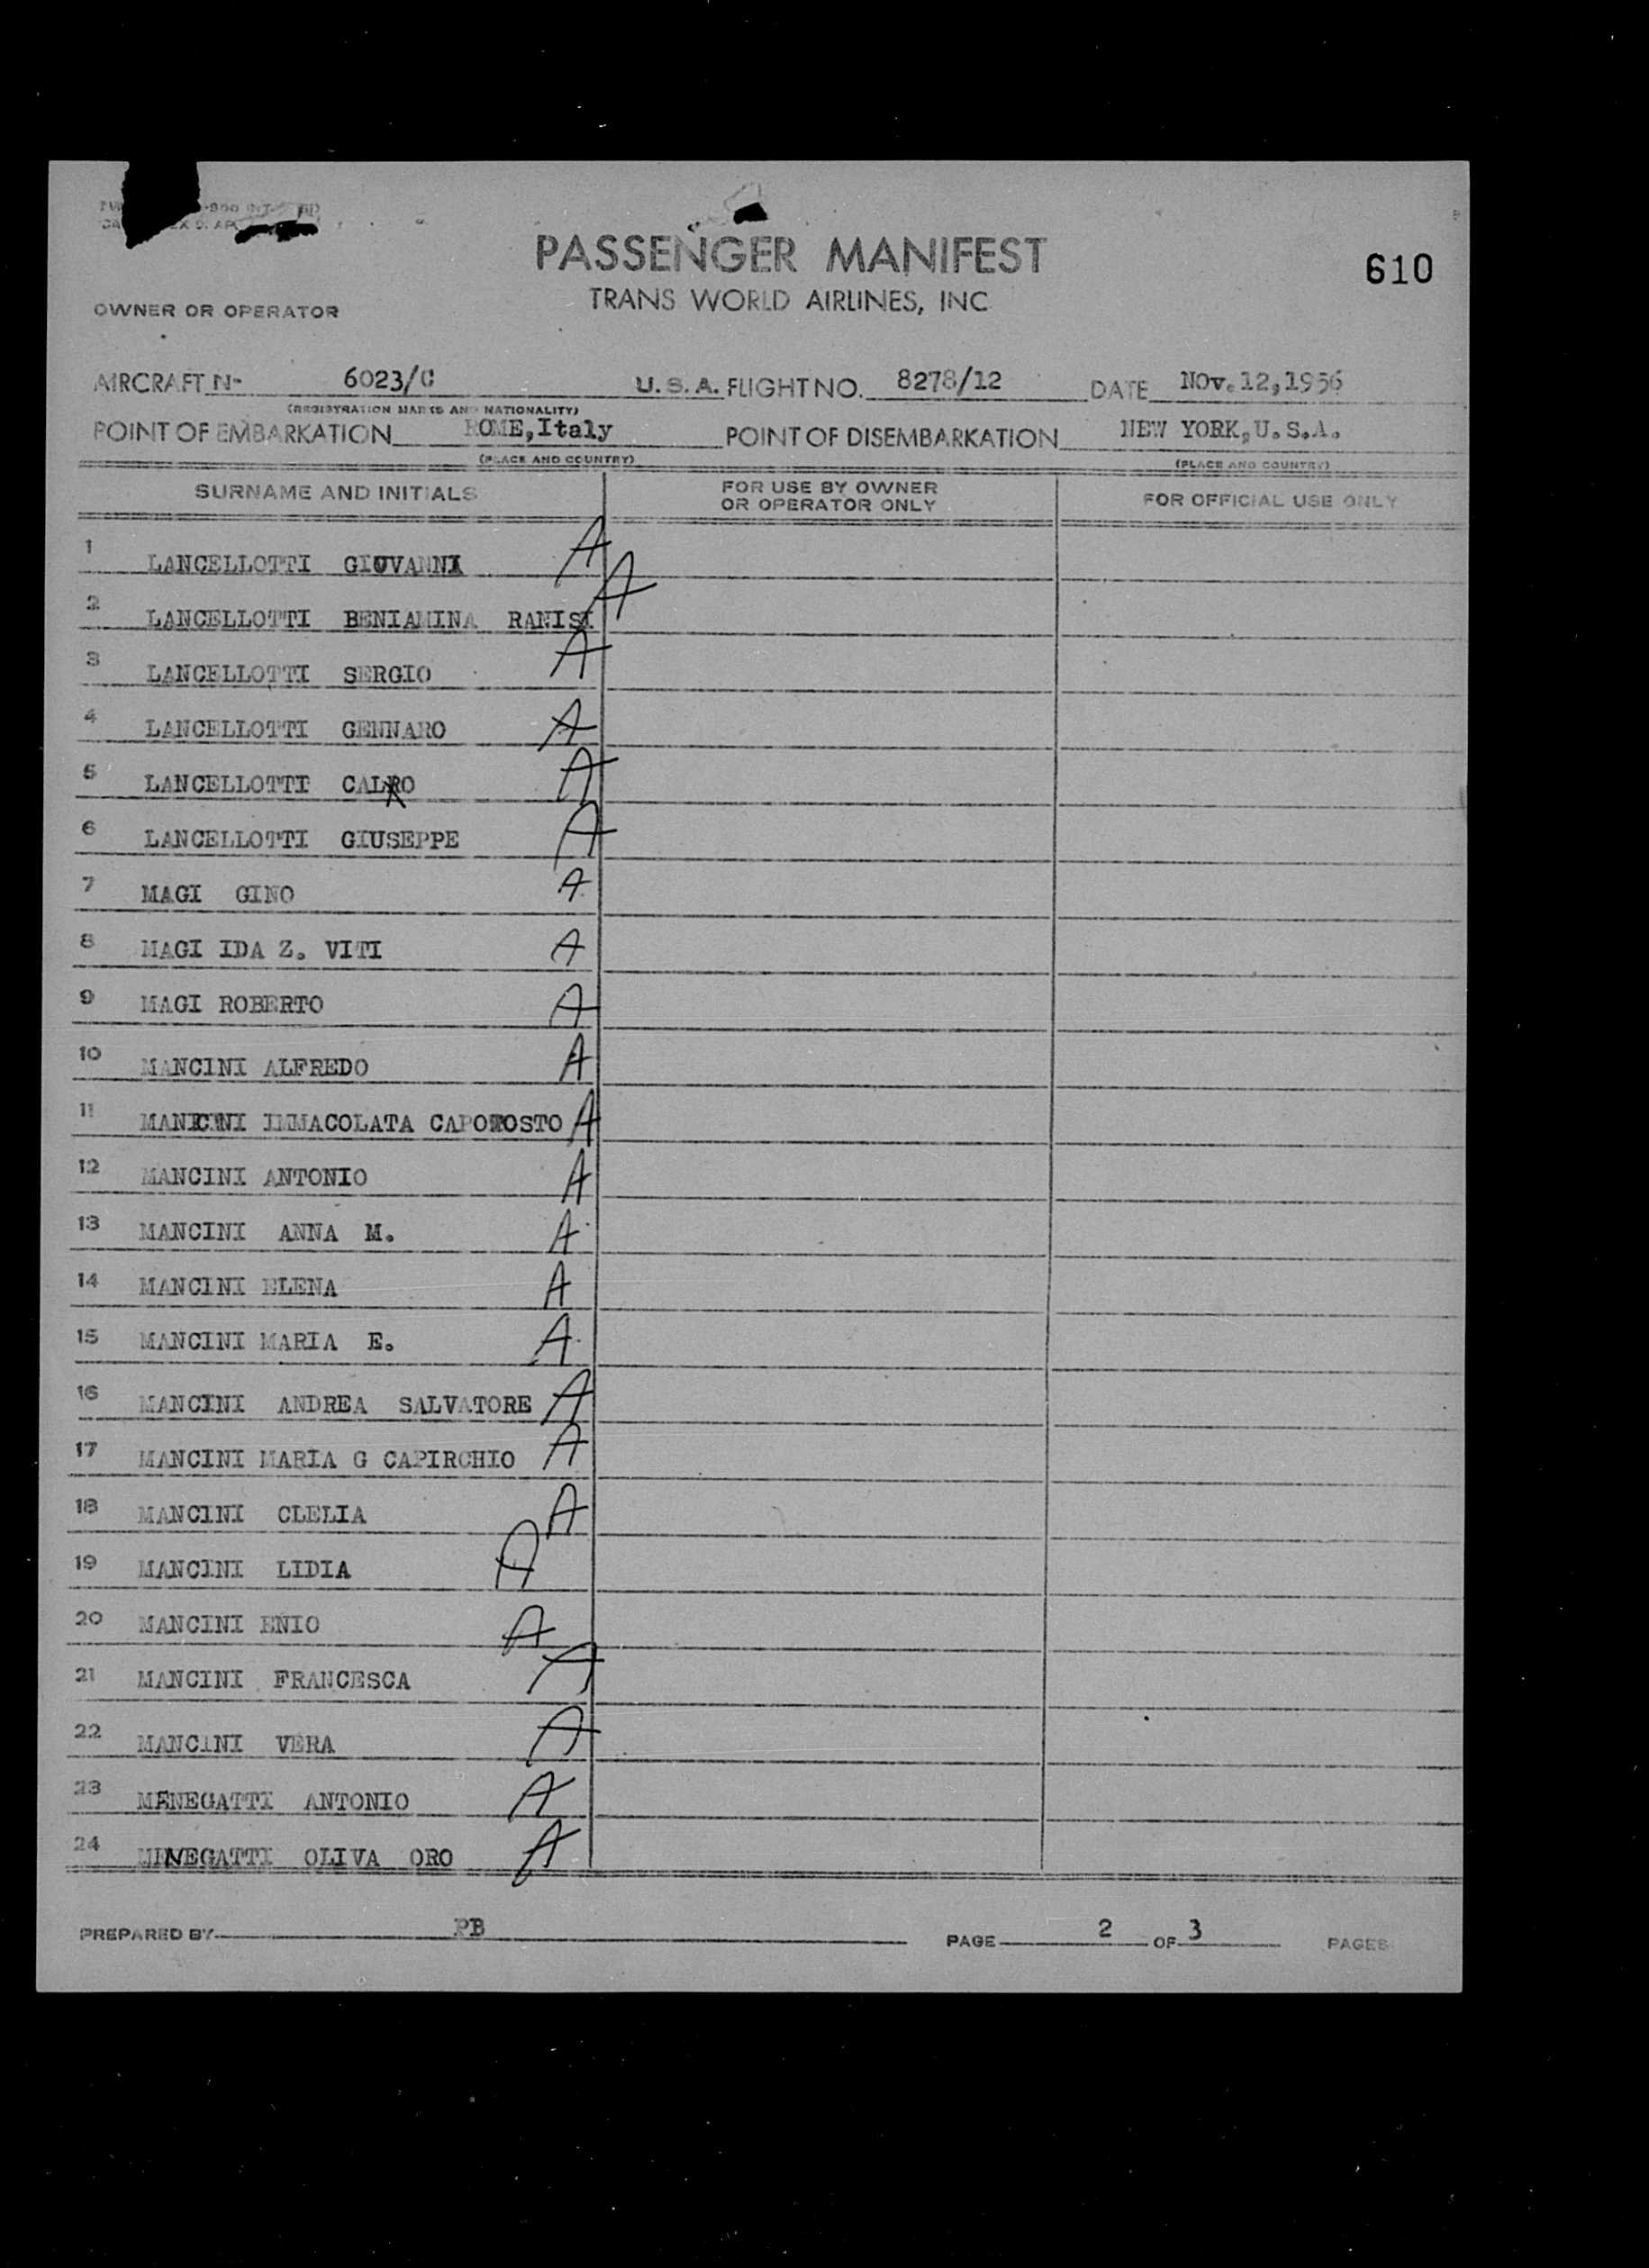 PASSENGER MANIFEST
610
TRANS WORLD AIRLINES, INC
OWNER OR OPERATOR
AIRCRAFT N- 6023/C U.S.A. FLIGHT NO. 8278/12 DATE Nov.12,1956
(REGISTRATION MARKS AND NATIONALITY)
POINT OF EMBARKATION ROME,Italy POINT OF DISEMBARKATION NEW YORK,U.S.A.
(PLACE AND COUNTRY) (PLACE AND COUNTRY)
SURNAME AND INITIALS FOR USE BY OWNER OR OPERATOR ONLY FOR OFFICIAL USE ONLY
1 LANCELLOTTI GIOVANNI A
2 LANCELLOTTI BENIAMINA RANISI A
3 LANCELLOTTI SERGIO A
4 LANCELLOTTI GENNARO A
5 LANCELLOTTI CALRO A
6 LANCELLOTTI GIUSEPPE A
7 MAGI GINO A
8 MAGI IDA Z. VITI A
9 MAGI ROBERTO A
10 MANCINI ALFREDO A
11 MANCINI IMMACOLATA CAPOTOSTO A
12 MANCINI ANTONIO A
13 MANCINI ANNA M. A
14 MANCINI ELENA A
15 MANCINI MARIA E. A
16 MANCINI ANDREA SALVATORE A
17 MANCINI MARIA G CAPIRCHIO A
18 MANCINI CLELIA A
19 MANCINI LIDIA A
20 MANCINI ENIO A
21 MANCINI FRANCESCA A
22 MANCINI VERA A
23 MENEGATTI ANTONIO A
24 MINEGATTI OLIVA ORO A
PREPARED BY PB PAGE 2 OF 3 PAGES